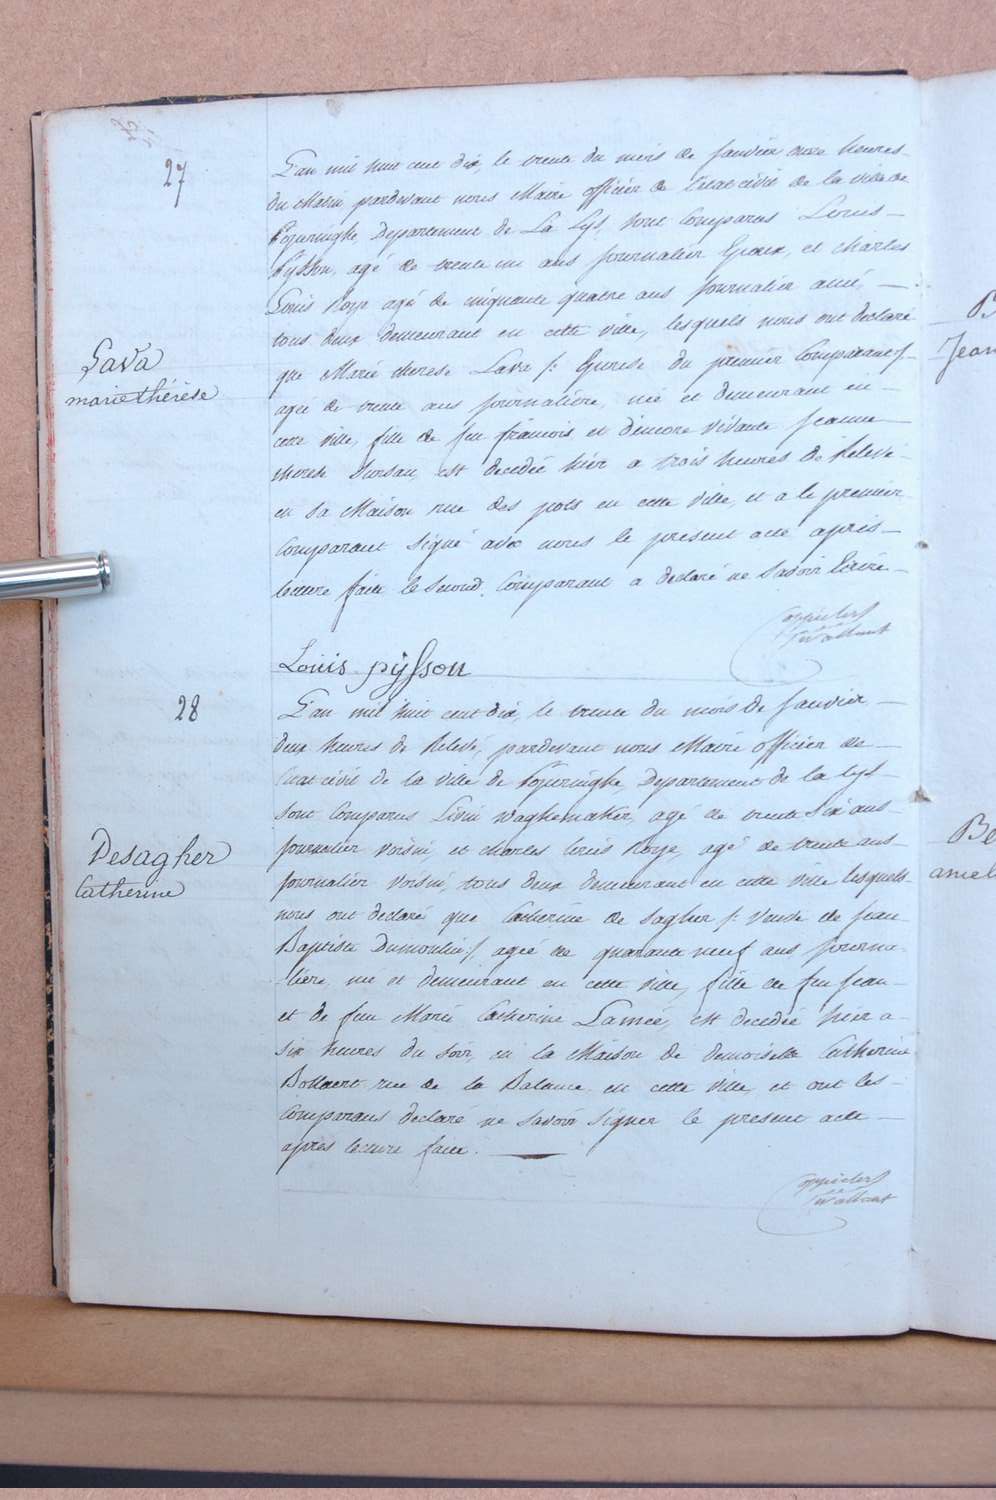 27
L'an mil huit cent dix, le trente du mois de Janvier onze heures
du Matin pardevant nous Maire officier de l'etat civil de la ville de
Poperinghe, Departement de La Lys, sont Comparus Louis
Pysson, agé de trente un ans Journalier Epoux, et Charles
Louis Roye agé de cinquante quatre ans Journalier ami,
tous deux demeurant en cette ville, lesquels nous ont declaré
Lava
marie thérèse
que Marie therese Lava /: Epouse du premier Comparant :/
agée de trente ans journalière, née et demeurant en
cette ville, fille de feu francois et d'encore vivante Jeanne
therese Sursau, est decedée hier a trois heures de Relevé
en sa Maison rue des pots en cette ville, et a le premier
Comparant signé avec nous le present acte après
lecture faite le second Comparant a declaré ne savoir Ecrire
Louis pysson
28
L'an mil huit cent dix, le trente du mois de Janvier
deux heures de Relevé, pardevant nous Maire officier de
l'etat civil de la ville de Poperinghe Departement de la Lys
sont Comparus Livin waghemaker, agé de trente six ans
journalier voisin, et charles louis Roye, agé de trente ans
Desagher
Catherine
journalier voisin, tous deux demeurant en cette ville lesquels
nous ont declaré que Catherine de Sagher /: veuve de Jean
Baptiste Dumoulin :/ agée de quarante neuf ans journa-
lière, née et demeurant en cette ville, fille de feu Jean
et de feu Marie Catherine Lamée, est decedée hier a
six heures du soir, en la Maison de demoiselle Catherine
Bollaert rue de la Balance en cette ville et ont les
Comparans declaré ne savoir signer le present acte
après lecture faite.
B
Jean
Be